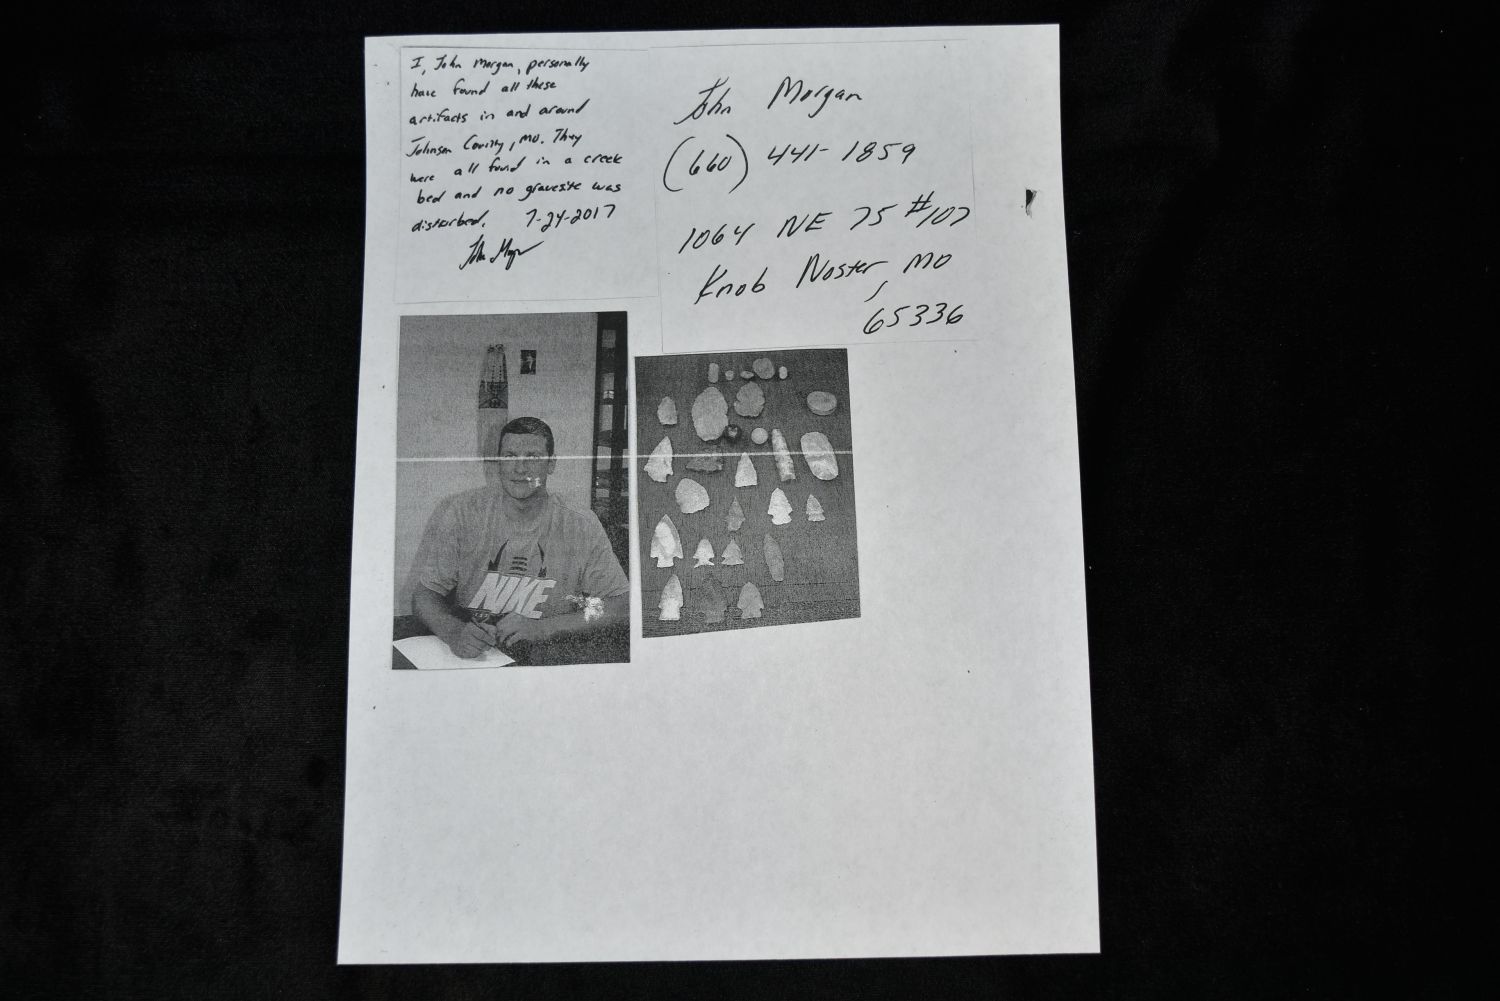 I, John Morgan, personally
have found all these
artifacts in and around
Johnson County, MO. They
were all found in a creek
bed and no gravesite was
disturbed. 7-24-2017
John Morgan
John Morgan
(660) 441-1859
1064 NE 75 #107
Knob Noster, MO
65336
NIKE